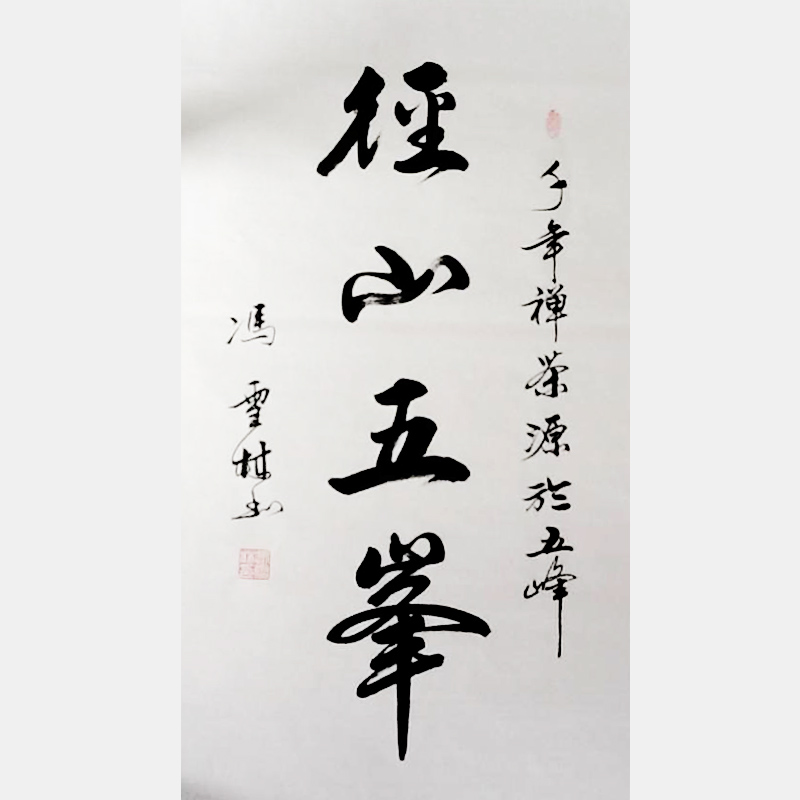 千年禅茶源於五峰
徑山五峯
馮雪林书